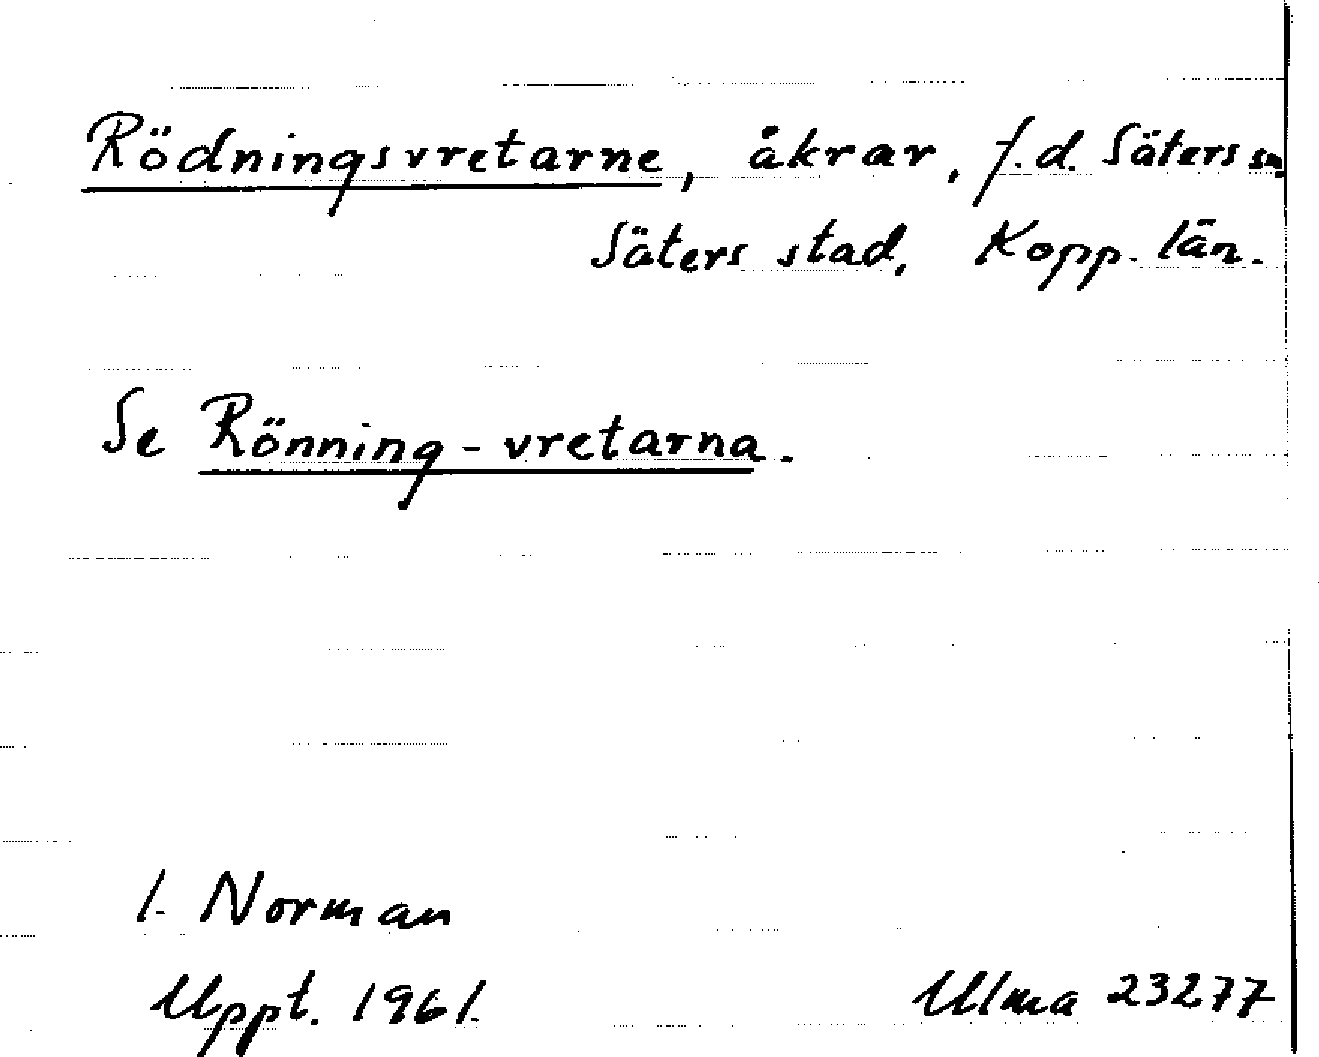 Rödningsvretarne, åkrar, f.d. Säters sn,
Säters stad, Kopp. län.
Se Rönning-vretarna.
I. Norman
Uppt. 1961.
Ulma 23277